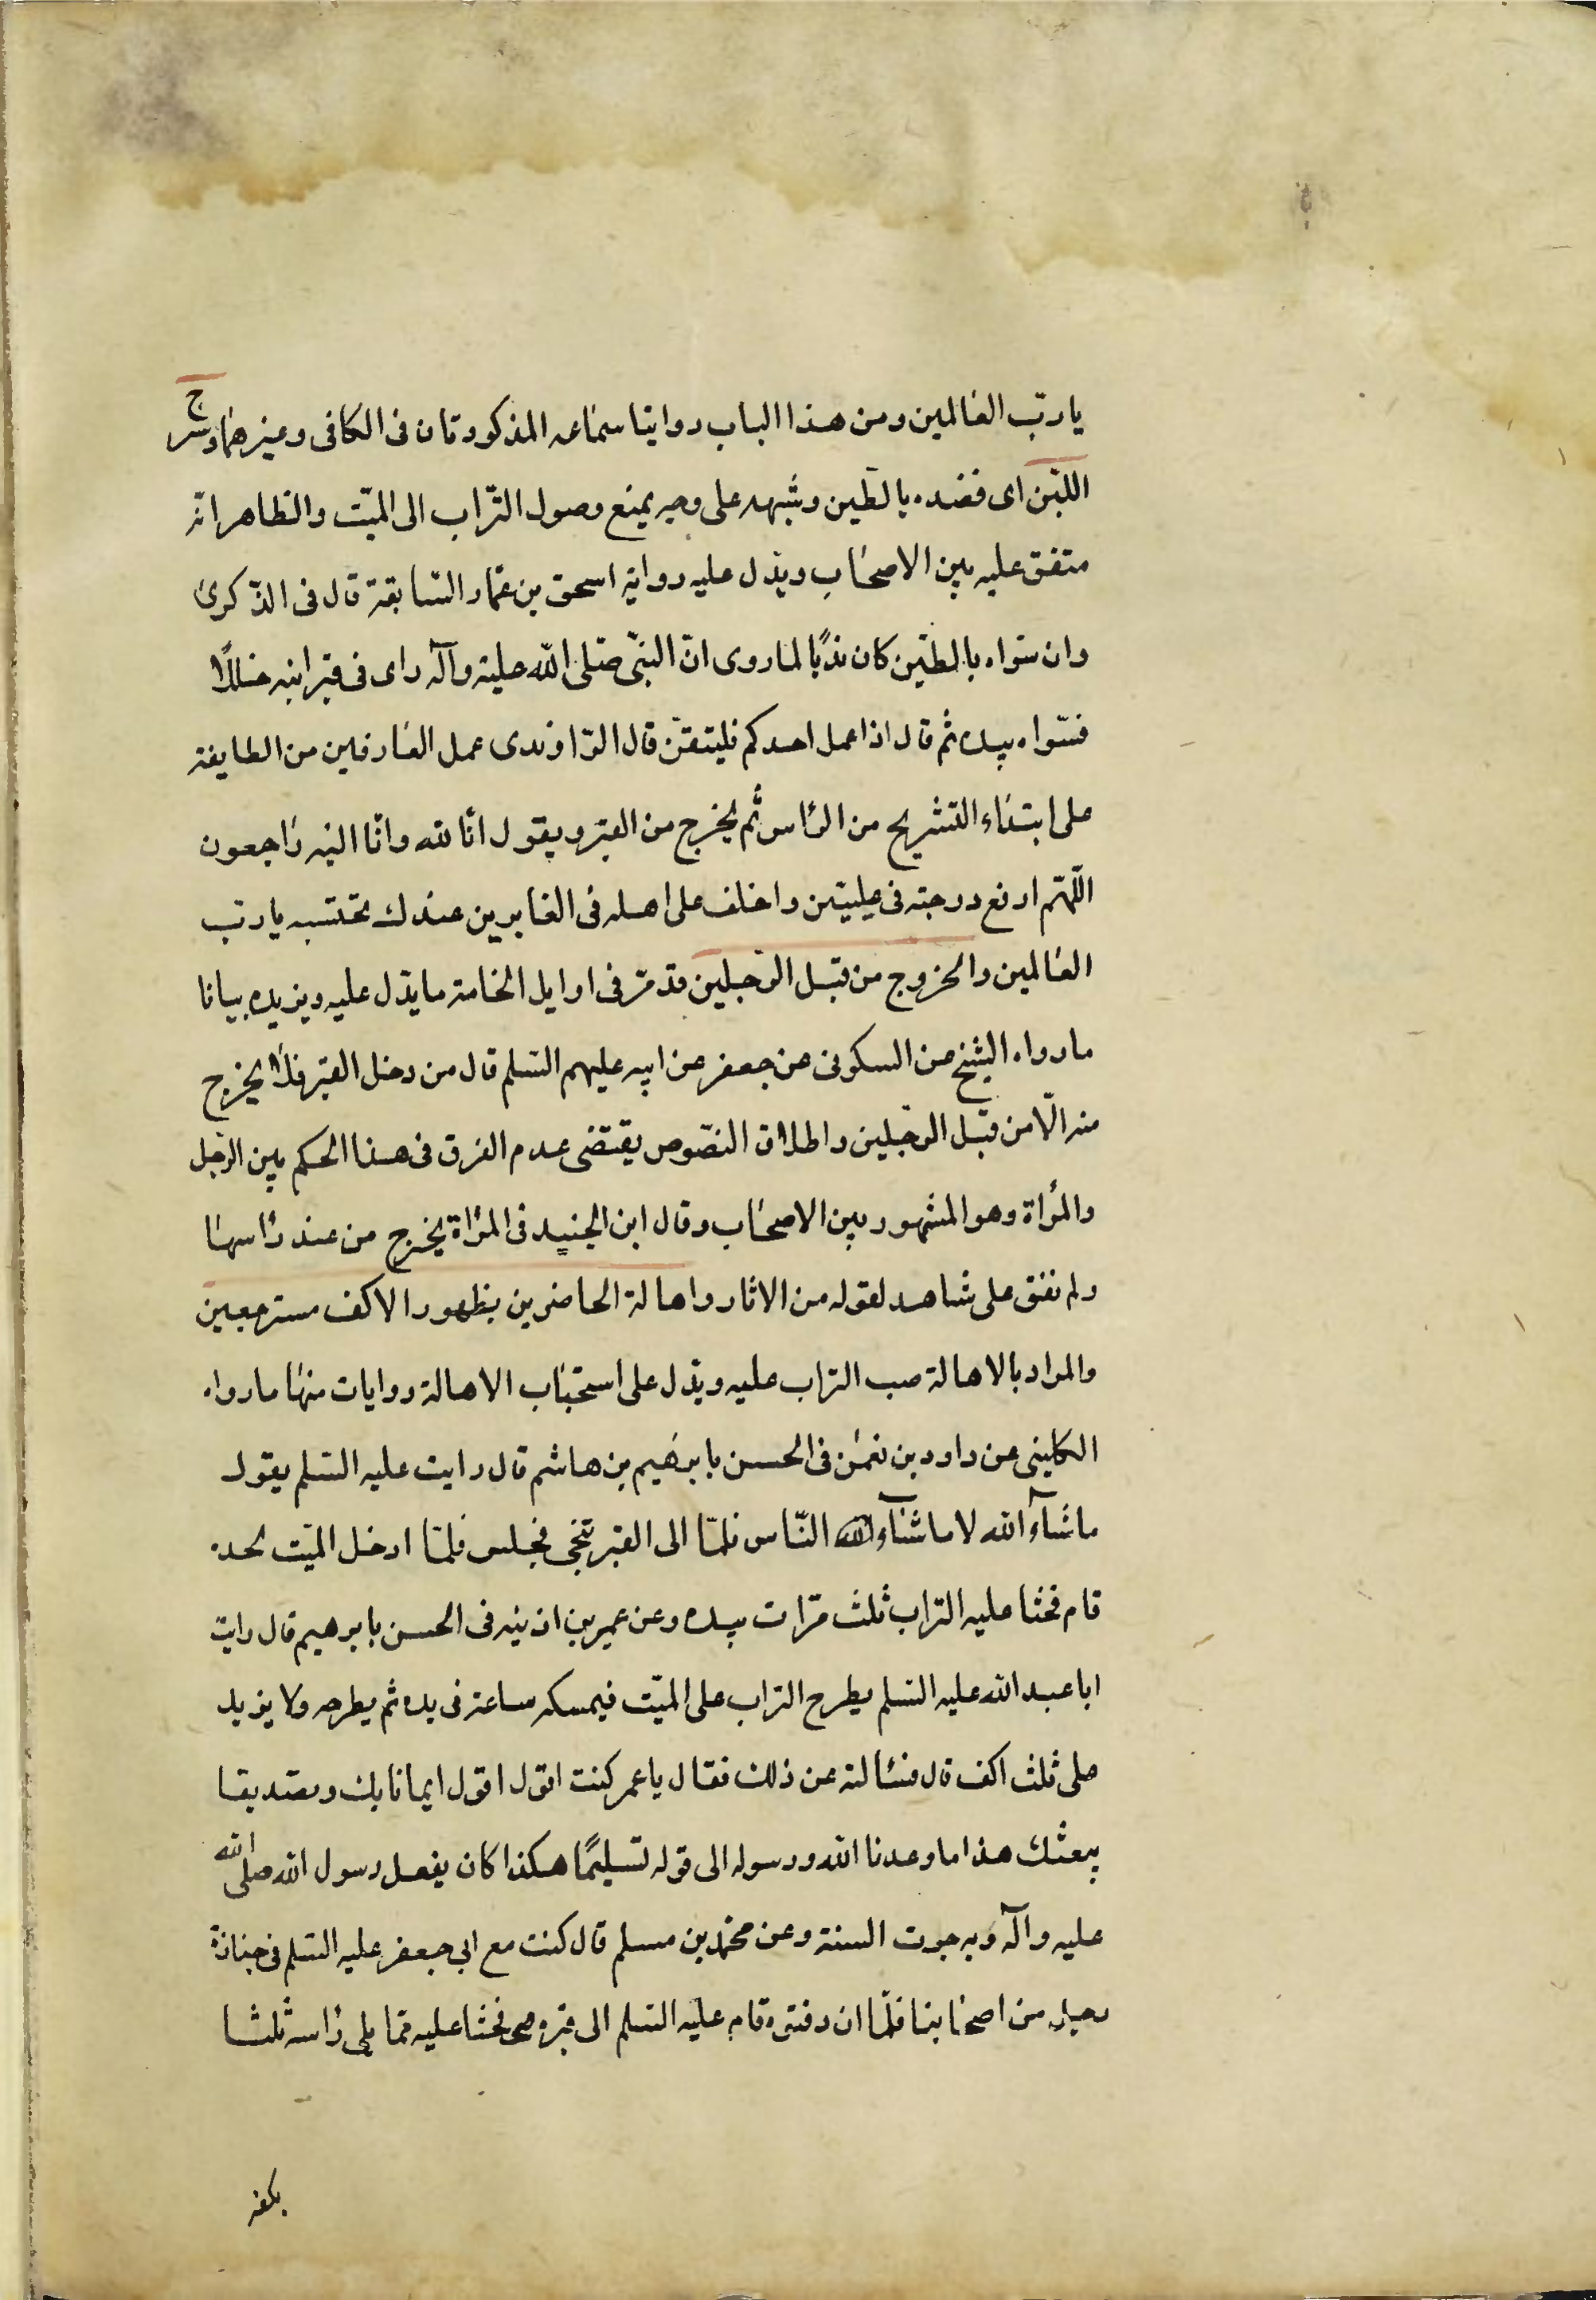 يا ربّ العالمين ومن هذا الباب روايتا سماعه المذكورتان فى الكافى وغيرهما وشرج
اللّبن اى فضده بالطين وشبهه على وجه يمنع وصول التّراب الى الميّت والظاهر انّه
متفق عليه بين الاصحاب ويدّل عليه رواية اسحق بن عمّار السّابقة قال فى الذّكرىٰ
وان سّواه بالطّين كان ندبًا لما روى انّ النبىّ صّلى الله عليه وآله راى فى قبر ابنه خللًا
فسّواه بيده ثم قال اذا عمل احدكم فليتقن قال الرّاوندى عمل العارفين من الطايفة
على ابتداء التشريح من الرّاس ثم يخرج من القبر ويقول انّا لله وانّا اليه راجعون
اللّهّم ارفع درجته فى عليّين واخلف على اهله فى الغابرين عندك نحتسبه يا ربّ
العالمين والخروج من قبل الرّجلين قد مّر فى اوايل الخامة ما يدّل عليه ويزيده بيانا
ما رواه الشيخ عن السكونى عن جعفر عن ابيه عليهم السّلم قال من دخل القبر فلا يخرج
منه الّا من قبل الرّجلين واطلاق النصّوص يقتضى عدم الفرق فى هذا الحكم بين الرّجل
والمرأة وهو المشهور بين الاصحاب وقال ابن الجنيد فى المرأة يخرج من عند رأسها
ولم نقف على شاهد لقوله من الاثار واهالة الحاضرين بظهور الاكف مسترجعين
والمراد بالاهالة صب التراب عليه ويدّل على استحباب الاهالة روايات منها ما رواه
الكلينى عن داود بن نعمن فى الحسن بابرهيم بن هاشم قال رايت عليه السّلم يقول
ما شآء الله لا ما شآء الله النّاس فلمّا الى القبر تنحّى فجلس فلمّا ادخل الميّت لحده
قام فحثا عليه التراب ثلث مرّات بيده وعن عمير بن اذينه فى الحسن بابرهيم قال رايت
ابا عبد الله عليه السّلم يطرح التراب على الميّت فيمسكه ساعة فى يده ثم يطرحه ولا يزيد
على ثلث اكف قال فسئالته عن ذلك فقال يا عمر كنت اقول اقول ايمانا بك وتصديقا
ببعثك هذا ما وعدنا الله ورسوله الى قوله تسليمًا هكذا كان يفعل رسول الله صلى الله
عليه وآله وبه جرت السنة وعن محمّد بن مسلم قال كنت مع ابى جعفر عليه السّلم فى جنازة
رجل من اصحابنا فلمّا ان دفنوه قام عليه السّلم الى قبره فحثا عليه ممّا يلى رأسه ثلثا
بكفه